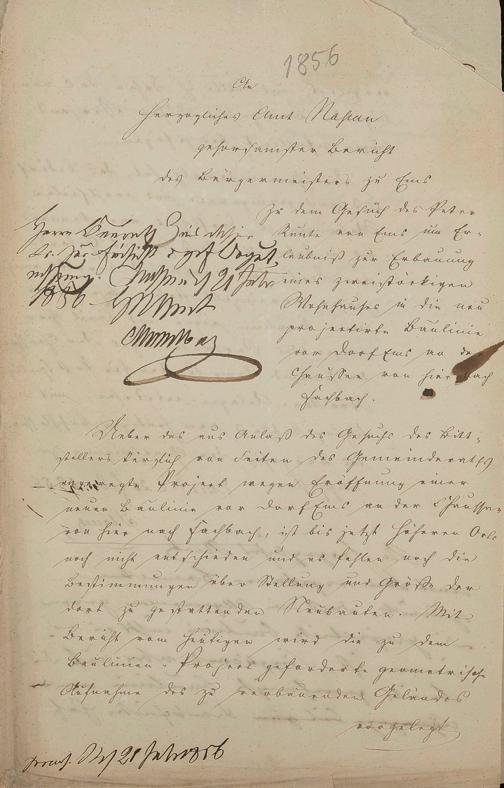 1856
An
Herzogliches Amt Nassau
gehorsamster Bericht
des Bürgermeisters zu Ems
zu dem Gesuch des Peter
Kunte von Ems um Er-
laubniß zur Erbauung
eines zweistöckigen
Wohnhauses in die neu
projectirte Baulinie
vor Dorf Ems an der
Chaussee von hier nach
Fachbach.
Herrn
Nassau 21 Febr
1856
Ueber das aus Anlaß des Gesuchs des Bitt-
stellers kürzlich von Seiten des Gemeinderaths
angeregte Project wegen Eröffnung einer
neuen Baulinie vor Dorf Ems an der Chaussee
von hier nach Fachbach, ist bis jetzt höheren Orts
noch nicht entschieden und es fehlen noch die
Bestimmungen über Stellung und Größe der
dort zu gestattenden Neubauten. Mit
Bericht vom heutigen wird die zu dem
Baulinien-Project geforderte geometrische
Aufnahme des zu verbauenden Geländes
vorgelegt
praes. 21 Febr 1856